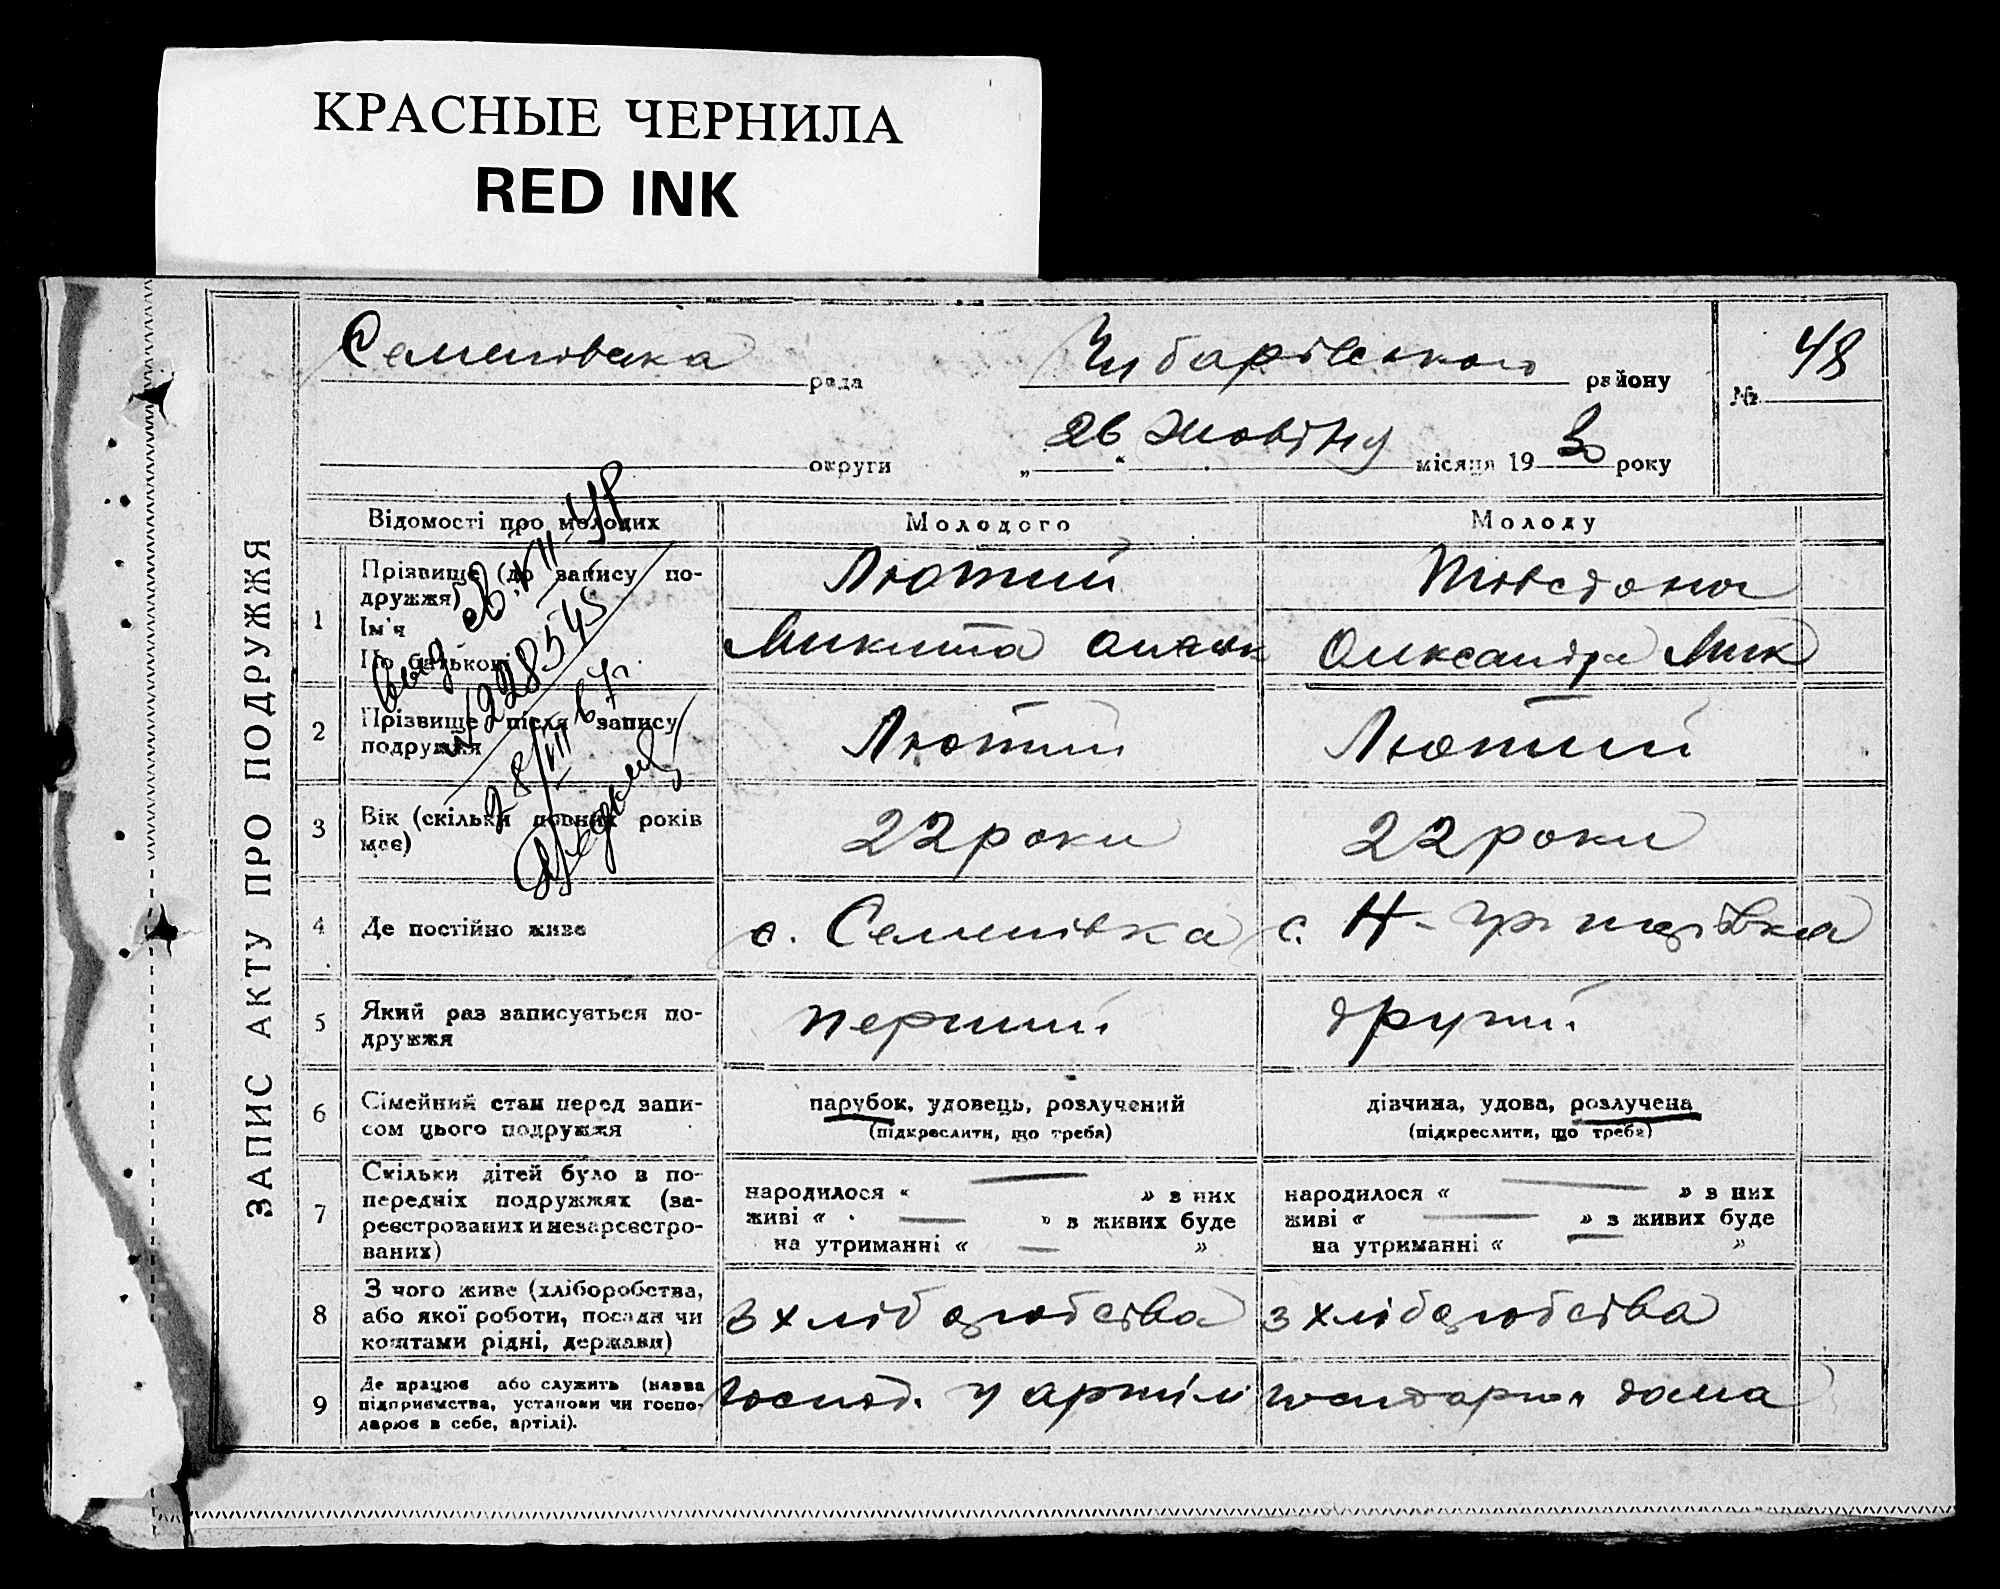 КРАСНЫЕ ЧЕРНИЛА
RED INK
ЗАПИС АКТУ ПРО ПОДРУЖЖЯ
Семенівська рада Чубарівського району № 48
округи „26“ жовтну місяця 1930 року
Відомості про молодих Молодого Молоду
1 Прізвище (до запису по-
дружжя) Лютий
Ім'я
По батькові Микита Олександра Мик
2 Прізвище після запису
подружжя Лютий Лютий
3 Вік (скільки повних років
має) 22 роки 22 роки
4 Де постійно живе с. Семенівка с. Н-
5 Який раз записується по-
дружжя перший другий
6 Сімейний стан перед запи-
сом цього подружжя
парубок, удовець, розлучений
(підкреслити, що треба)
дівчина, удова, розлучена
(підкреслити, що треба)
7 Скільки дітей було в по-
передніх подружжях (за-
реєстрованих и незареєстро-
ваних)
народилося « — » з них
живі « — » з живих буде
на утриманні « — »
народилося « — » з них
живі « — » з живих буде
на утриманні « — »
8 З чого живе (хліборобства,
або якої роботи, посади чи
коштами рідні, держави)
з хліборобства з хліборобства
9 Де працює або служить (назва
підприємства, установи чи госпо-
дарює в себе, артілі).
господ. у артілі господарює дома
28/III 67г.